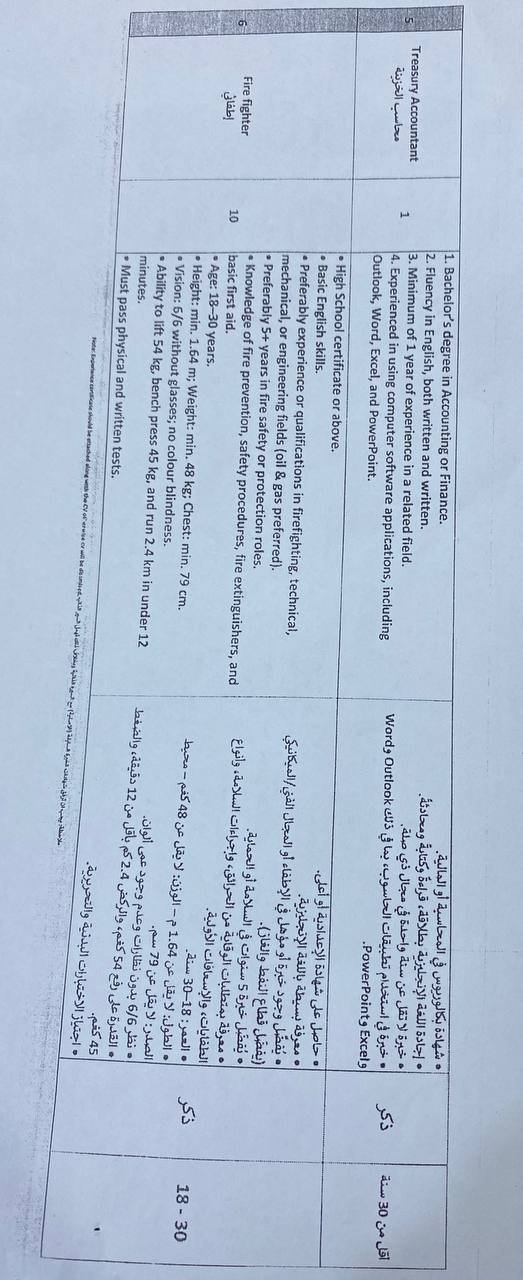 5
Treasury Accountant
محاسب الخزينة
1
1. Bachelor's degree in Accounting or Finance.
2. Fluency in English, both written and written.
3. Minimum of 1 year of experience in a related field.
4. Experienced in using computer software applications, including
Outlook, Word, Excel, and PowerPoint.
• شهادة بكالوريوس في المحاسبة أو المالية.
• إجادة اللغة الإنجليزية بطلاقة، قراءةً وكتابةً ومحادثةً.
• خبرة لا تقل عن سنة واحدة في مجال ذي صلة.
• خبرة في استخدام تطبيقات الحاسوب، بما في ذلك Outlook وWord
وExcel وPowerPoint.
ذكر
اقل من 30 سنة
6
Fire fighter
إطفائي
10
• High School certificate or above.
• Basic English skills.
• Preferably experience or qualifications in firefighting, technical,
mechanical, or engineering fields (oil & gas preferred).
• Preferably 5+ years in fire safety or protection roles.
• Knowledge of fire prevention, safety procedures, fire extinguishers, and
basic first aid.
• Age: 18–30 years.
• Height: min. 1.64 m; Weight: min. 48 kg; Chest: min. 79 cm.
• Vision: 6/6 without glasses; no colour blindness.
• Ability to lift 54 kg, bench press 45 kg, and run 2.4 km in under 12
minutes.
• Must pass physical and written tests.
• حاصل على شهادة الإعدادية أو أعلى.
• معرفة بسيطة باللغة الإنجليزية.
• يُفضّل وجود خبرة أو مؤهل في الإطفاء أو المجال الفني/الميكانيكي
(يفضل قطاع النفط والغاز).
• يُفضّل خبرة 5 سنوات في السلامة أو الحماية.
• معرفة بمتطلبات الوقاية من الحرائق، وإجراءات السلامة، وأنواع
الطفايات، والإسعافات الأولية.
• العمر: 18–30 سنة.
• الطول: لا يقل عن 1.64 م – الوزن: لا يقل عن 48 كغم – محيط
الصدر: لا يقل عن 79 سم.
• نظر 6/6 بدون نظارات وعدم وجود عمى ألوان.
• القدرة على رفع 54 كغم، والركض 2.4 كم بأقل من 12 دقيقة، والضغط
45 كغم.
• اجتياز الاختبارات البدنية والتحريرية.
ذكر
18 - 30
Note: Experience certificate should be attached along with the CV otherwise cv will be dismissed.